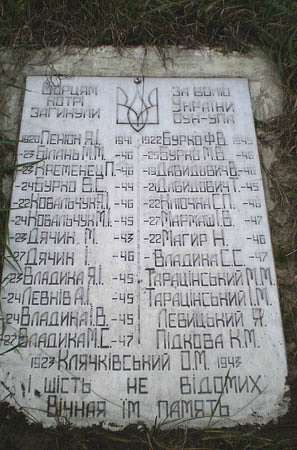 Борцям за волю
котрі України
загинули ОУН-УПА
1920 Пенюк Я.І. 1941 1922 Бурко Ф.В. 1945
-23 Білань М.М. -46 -25 Бурко М.В. -46
-23 Кременець П. -46 -19 Давидович В. -40
-24 Бурко В.Є. -44 -21 Давидович Г. -45
-22 Ковальчук А.І. -46 -22 Ключка С.П. -46
-24 Ковальчук М.І. -45 -27 Мармаш В.І. -47
-23 Дячик М. -43 -22 Магир Н. -46
-27 Дячик І. -46 Владика С.С. -47
-23 Владика Я.І. -45 Тарацінський М.М.
-24 Левків А.І. -45 Тарацінський І.М.
-24 Владика І.В. -45 Левицький Я.
-27 Владика М.С. -47 Підкова К.М.
1927 Клячківський О.М. 1947
І шість не відомих
Вічная їм память